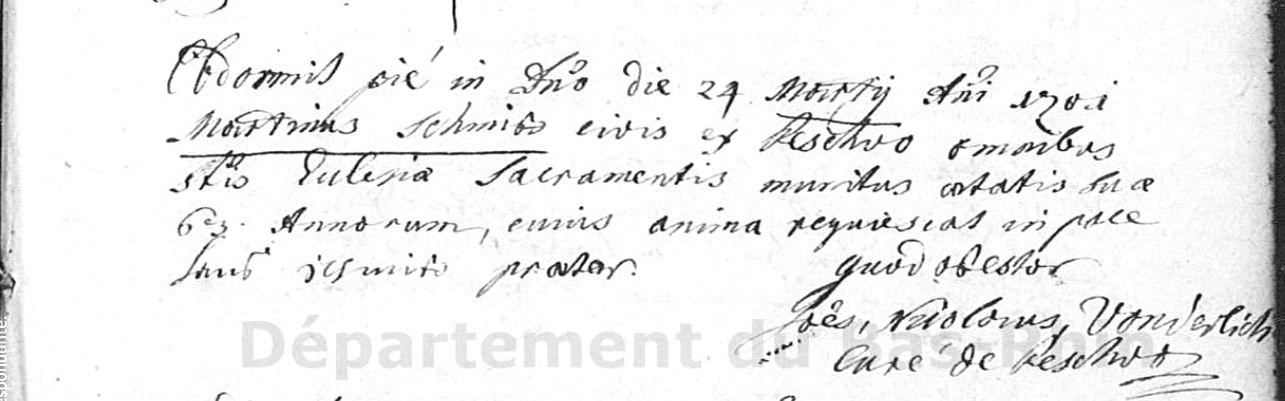 Obdormit pié in Dno die 24 Martij Ani 1701
Martinus Schmitt civis ex Reschwo omnibus
stis Eclesiæ Sacramentis munitus ætatis suæ
63. Annorum, cuius anima requiescat in pace
quod obestor
Joês, Nicolaus, Vonderlich
Curé de Reschwo
Département du Bas-Rhin